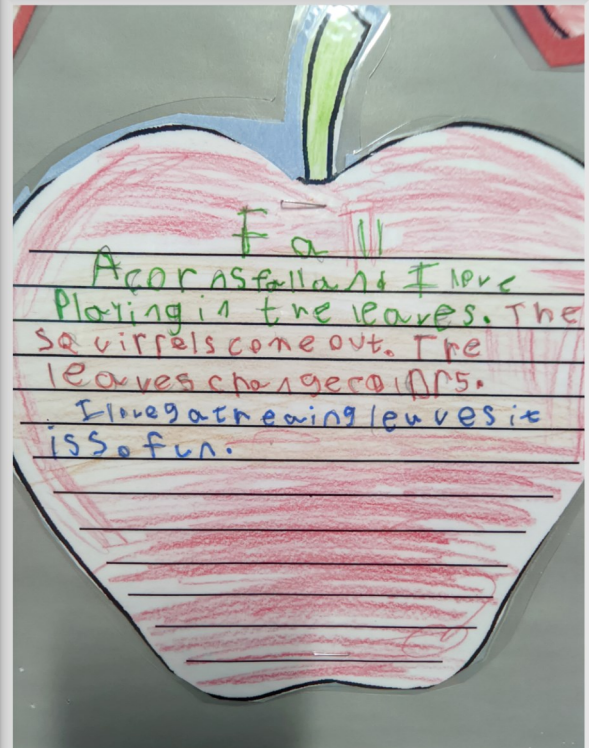 Fall
Acorns fall and I love
Playing in the leaves. The
squirrels come out. The
leaves change colors.
I love gatreaing leaves it
is so fun.